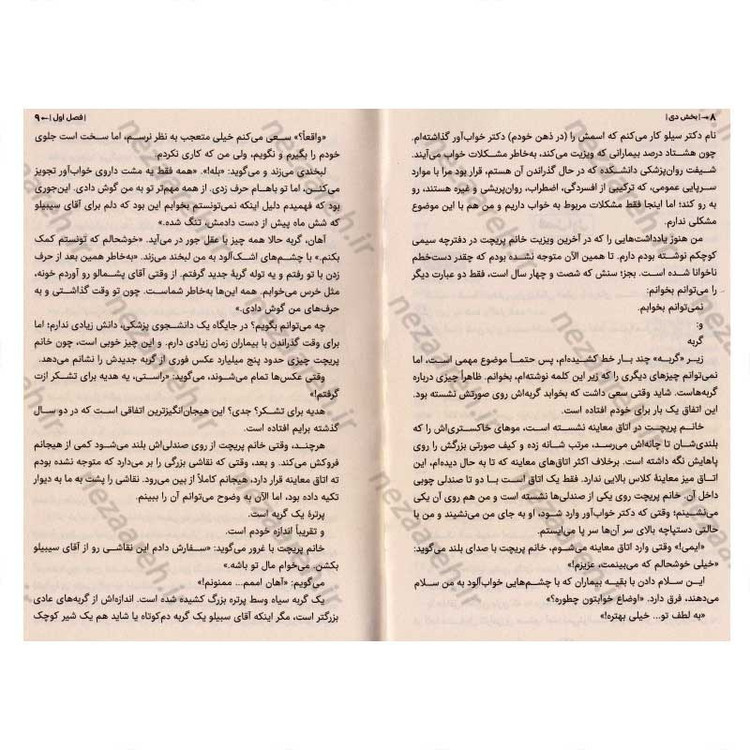 ۸ → | بخش دی |
نام دکتر سیلو کار می‌کنم که اسمش را (در ذهن خودم) دکتر خواب‌آور گذاشته‌ام.
چون هشتاد درصد بیمارانی که ویزیت می‌کند، به‌خاطر مشکلات خواب می‌آیند.
شیفت روان‌پزشکی دانشکده که در حال گذراندن آن هستم، قرار بود مرا با موارد
سرپایی عمومی، که ترکیبی از افسردگی، اضطراب، روان‌پریشی و غیره هستند، رو
به رو کند؛ اما اینجا فقط مشکلات مربوط به خواب داریم و من هم با این موضوع
مشکلی ندارم.
من هنوز یادداشت‌هایی را که در آخرین ویزیت خانم پریچت در دفترچه سیمی
کوچکم نوشته بودم دارم. تا همین الآن متوجه نشده بودم که چقدر دست‌خطم
ناخوانا شده است. بجز؛ سنش که شصت و چهار سال است، فقط دو عبارت دیگر
را می‌توانم بخوانم:
نمی‌توانم بخوابم.
و:
گربه
زیر «گربه» چند بار خط کشیده‌ام، پس حتماً موضوع مهمی است، اما
نمی‌توانم چیزهای دیگری را که زیر این کلمه نوشته‌ام، بخوانم. ظاهراً چیزی درباره
گربه‌هاست. شاید وقتی سعی داشت که بخوابد گربه‌اش روی صورتش نشسته بود.
این اتفاق یک بار برای خودم افتاده است.
خانم پریچت در اتاق معاینه نشسته است، موهای خاکستری‌اش را که
بلندی‌شان تا چانه‌اش می‌رسد، مرتب شانه زده و کیف صورتی بزرگش را روی
پاهایش نگه داشته است. برخلاف اکثر اتاق‌های معاینه که تا به حال دیده‌ام، این
اتاق میز معاینهٔ کلاس بالایی ندارد. فقط یک اتاق است با دو تا صندلی چوبی
داخل آن. خانم پریچت روی یکی از صندلی‌ها نشسته است و من هم روی آن یکی
می‌نشینم؛ وقتی که دکتر خواب‌آور وارد شود، او به جای من می‌نشیند و من با
حالتی دستپاچه بالای سر آن‌ها سر پا می‌ایستم.
«ایمی!» وقتی وارد اتاق معاینه می‌شوم، خانم پریچت با صدای بلند می‌گوید:
«خیلی خوشحالم که می‌بینمت، عزیزم!»
این سلام دادن با بقیه بیماران که با چشم‌هایی خواب‌آلود به من سلام
می‌دهند، فرق دارد. «اوضاع خوابتون چطوره؟»
«به لطف تو... خیلی بهتره!»
| فصل اول | ← ۹
«واقعاً؟» سعی می‌کنم خیلی متعجب به نظر نرسم، اما سخت است جلوی
خودم را بگیرم و نگویم، ولی من که کاری نکردم.
لبخندی می‌زند و می‌گوید: «بله!». «همه فقط یه مشت داروی خواب‌آور تجویز
می‌کنن، اما تو باهام حرف زدی. از همه مهم‌تر تو به من گوش دادی. این‌جوری
بود که فهمیدم دلیل اینکه نمی‌تونستم بخوابم این بود که دلم برای آقای سیبیلو
که شش ماه پیش از دست دادمش، تنگ شده.»
آهان، گربه حالا همه چیز با عقل جور در می‌آید. «خوشحالم که تونستم کمک
بکنم.» با چشم‌های اشک‌آلود به من لبخند می‌زند. «به‌خاطر همین بعد از حرف
زدن با تو رفتم و یه توله گربهٔ جدید گرفتم. از وقتی آقای پشمالو رو آوردم خونه،
مثل خرس می‌خوابم. همه این‌ها به‌خاطر شماست. چون تو وقت گذاشتی و به
حرف‌های من گوش دادی.»
چه می‌توانم بگویم؟ در جایگاه یک دانشجوی پزشکی، دانش زیادی ندارم؛ اما
برای وقت گذراندن با بیماران زمان زیادی دارم. و این چیز خوبی است، چون خانم
پریچت چیزی حدود پنج میلیارد عکس فوری از گربه جدیدش را نشانم می‌دهد.
وقتی عکس‌ها تمام می‌شوند، می‌گوید: «راستی، یه هدیه برای تشکر ازت
گرفتم!»
هدیه برای تشکر؟ جدی؟ این هیجان‌انگیزترین اتفاقی است که در دو سال
گذشته برایم افتاده است.
هرچند، وقتی خانم پریچت از روی صندلی‌اش بلند می‌شود کمی از هیجانم
فروکش می‌کند. و بعد، وقتی که نقاشی بزرگی را بر می‌دارد که متوجه نشده بودم
ته اتاق معاینه قرار دارد، هیجانم کاملاً از بین می‌رود. نقاشی را پشت به ما به دیوار
تکیه داده بود، اما الآن به وضوح می‌توانم آن را ببینم.
پرترهٔ یک گربه است.
و تقریباً اندازه خودم است.
خانم پریچت با غرور می‌گوید: «سفارش دادم این نقاشی رو از آقای سیبیلو
بکشن. می‌خوام مال تو باشه.»
می‌گویم: «آهان اممم... ممنونم!»
یک گربه سیاه وسط پرتره بزرگ کشیده شده است. اندازه‌اش از گربه‌های عادی
بزرگ‌تر است، مگر اینکه آقای سبیلو یک گربه دم‌کوتاه یا شاید هم یک شیر کوچک
nezaareh.ir